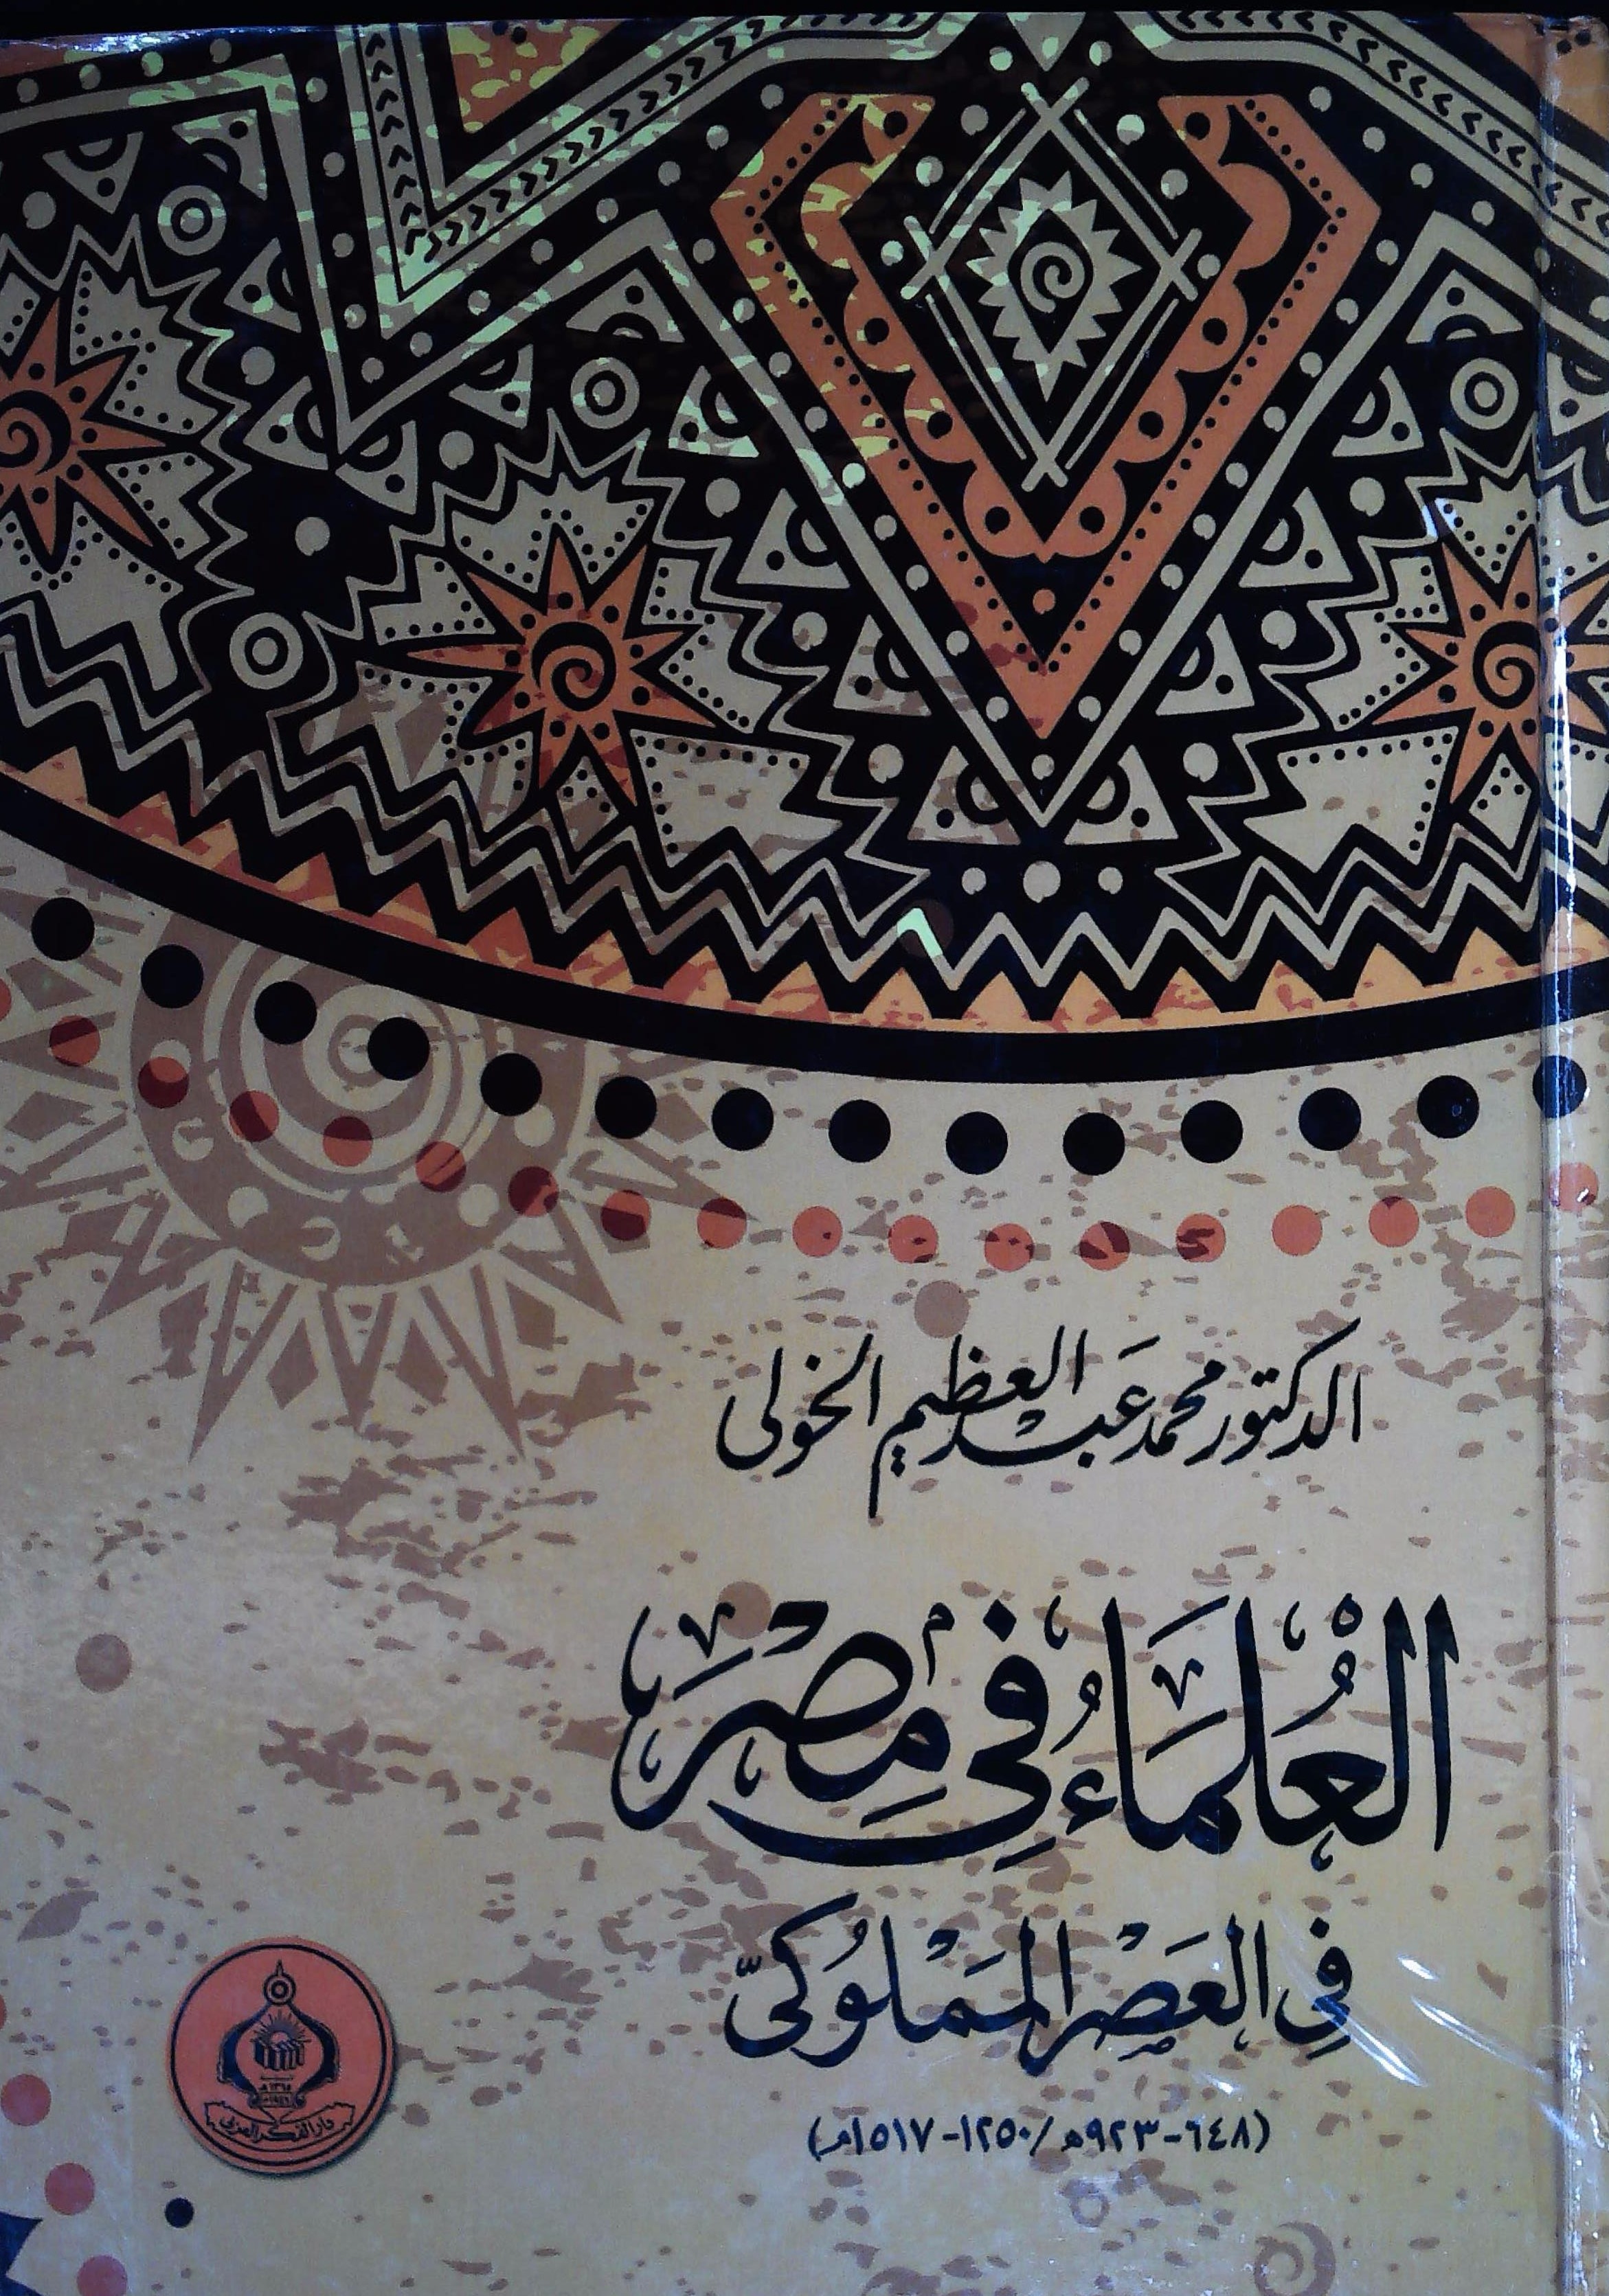 الدكتور محمد عبد العظيم الخولى
العُلَمَاءُ فِي مِصْرَ
فِي العَصْرِ المَمْلُوكىّ
(٦٤٨-٩٢٣هـ/١٢٥٠-١٥١٧م)
دار الفكر العربي